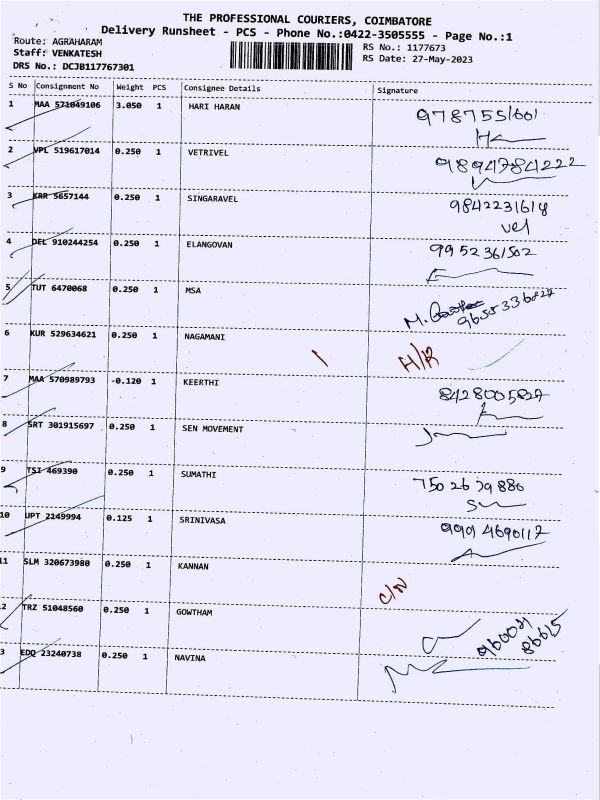 THE PROFESSIONAL COURIERS, COIMBATORE
Delivery Runsheet - PCS - Phone No.:0422-3505555 - Page No.:1
Route: AGRAHARAM
RS No.: 1177673
Staff: VENKATESH
RS Date: 27-May-2023
DRS No.: DCJB117767301
S No Consignment No Weight PCS Consignee Details Signature
1 MAA 571049106 3.050 1 HARI HARAN
9787551601
2 VPL 519617014 0.250 1 VETRIVEL
98947784222
3 KRR 5657144 0.250 1 SINGARAVEL
9842231618
vel
4 DEL 910244254 0.250 1 ELANGOVAN
9952361502
5 TUT 6470068 0.250 1 MSA
M.
6 KUR 529634621 0.250 1 NAGAMANI
H/R
7 MAA 570989793 -0.120 1 KEERTHI
8428005827
8 SRT 301915697 0.250 1 SEN MOVEMENT
9 TSI 469390 0.250 1 SUMATHI
10 UPT 2149994 0.125 1 SRINIVASA
9994690117
11 SLM 320673980 0.250 1 KANNAN
C/N
2 TRZ 51048560 0.250 1 GOWTHAM
3 EDQ 23240738 0.250 1 NAVINA